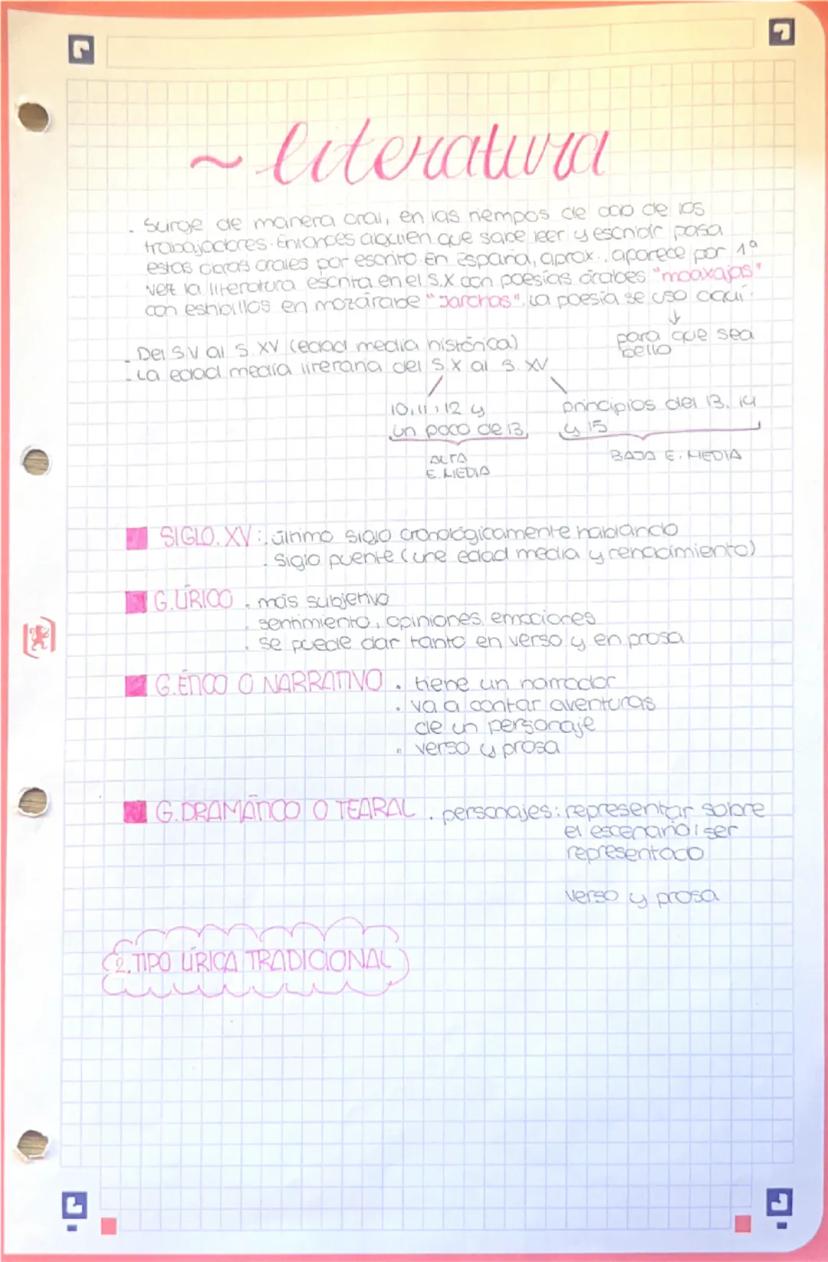 ~ Literatura
. Surge de manera oral, en los tiempos de ocio de los
trabajadores. Entonces alguien que sabe leer y escribir pasa
estas obras orales por escrito. En España, aprox., aparece por 1º
vez la literatura escrita en el S.X con poesías árabes "moaxajas"
con estribillos en mozárabe "Jarchas". La poesía se uso aquí.
↓
para que sea
bello
. Del S.V al S. XV (edad media histórica)
. La edad media literaria del S.X al S. XV
10, 11, 12 y
un poco de 13
ALTA
E.MEDIA
principios del 13, 14
y 15
BAJA E. MEDIA
SIGLO. XV: . último siglo cronológicamente hablando
. siglo puente (une edad media y renacimiento)
G.LÍRICO . más subjetivo
. sentimiento, opiniones, emociones
. se puede dar tanto en verso y en prosa
G.ÉTICO O NARRATIVO . tiene un narrador
. va a contar aventuras
de un personaje
. verso y prosa
G.DRAMÁTICO O TEARAL . personajes: representar sobre
el escenario/ser
representado
verso y prosa
2. TIPO LÍRICA TRADICIONAL